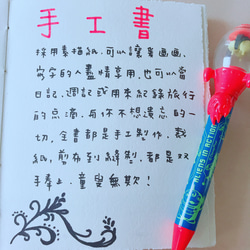 手工書
採用素描紙,可以讓畫畫、
寫字的人盡情享用,也可以當
日記、週記或用來紀錄旅行
的点滴,与你不想遺忘的一
切,全書都是手工製作,裁
紙,剪布到縫製,都是双
手奉上,童叟無欺!
ALIENS IN ACTION